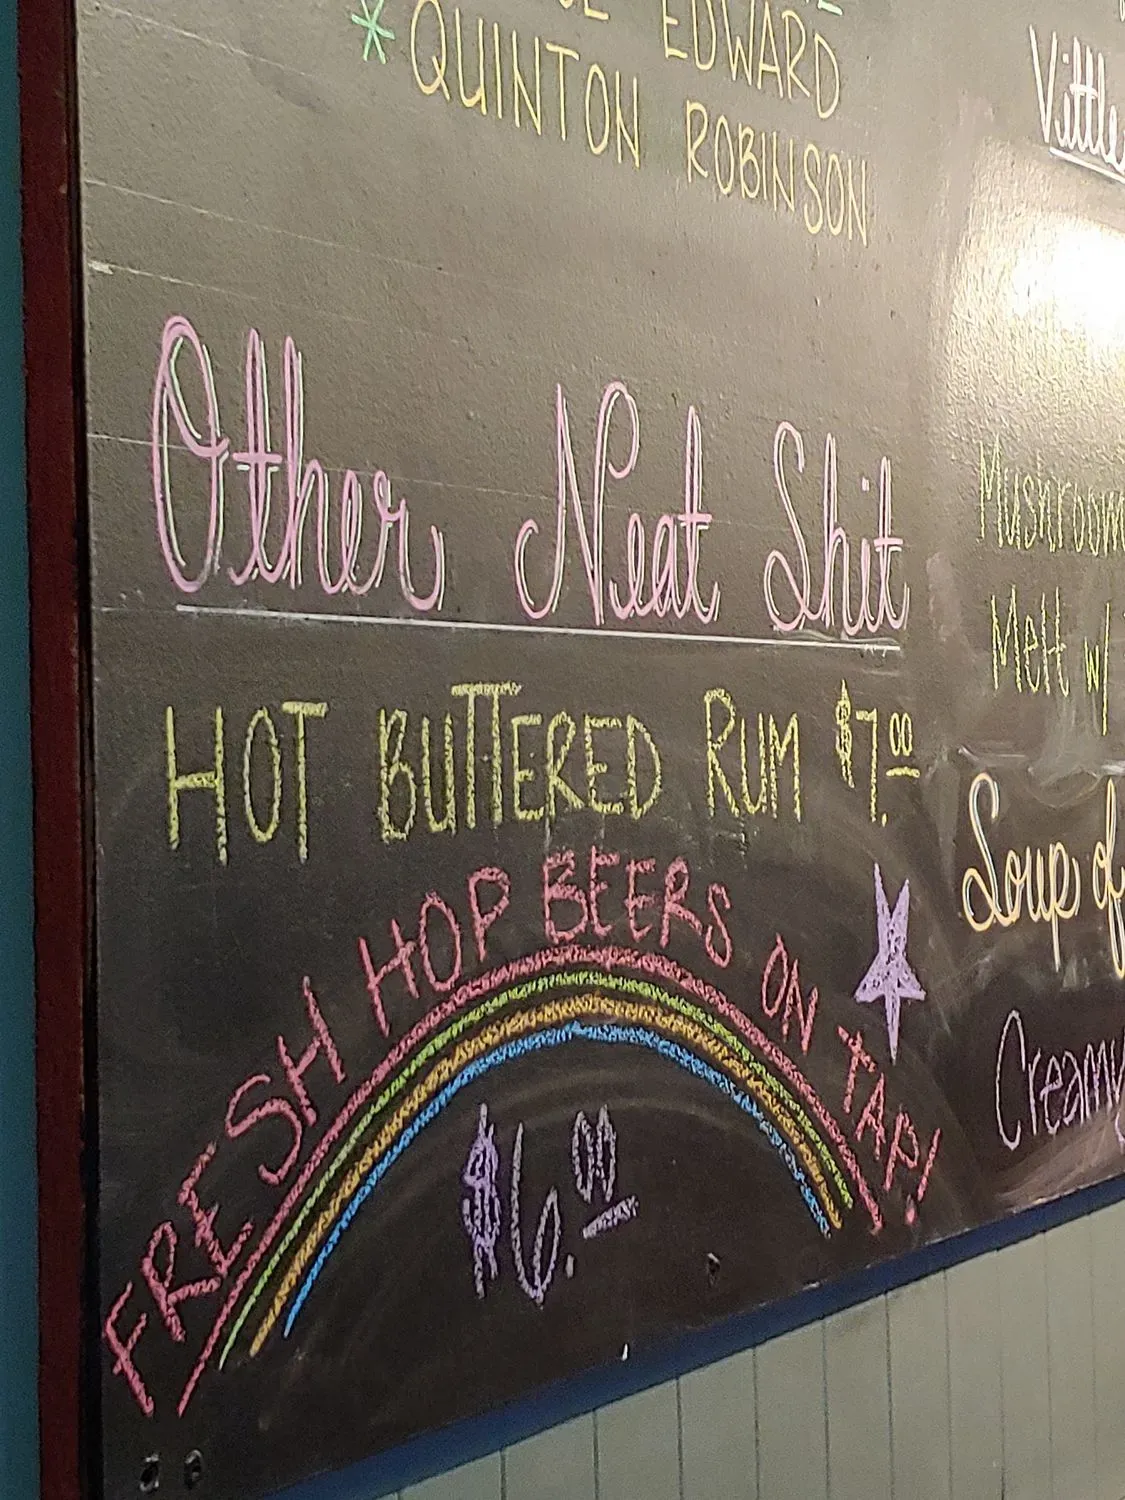 EDWARD
* QUINTON ROBINSON
Other Neat Shit
HOT BUTTERED RUM $7.00
FRESH HOP BEERS ON TAP!
$6.00
Mushroom
Melt w/
Soup of
Creamy